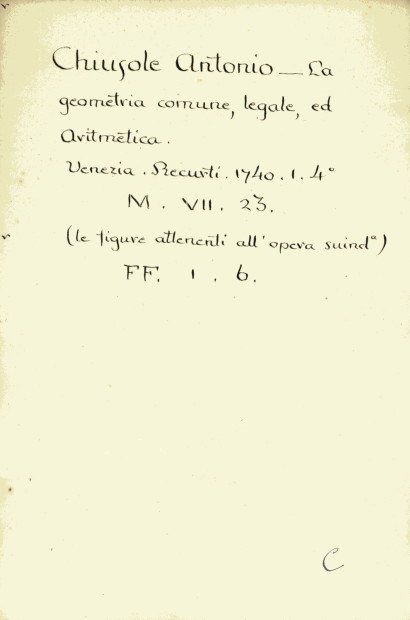 Chiusole Antonio — La
geometria comune, legale, ed
Aritmetica.
Venezia. Recurti. 1740. 1. 4°
M. VII. 23.
(le figure attenenti all'opera suindᵃ)
FF. 1. 6.
C